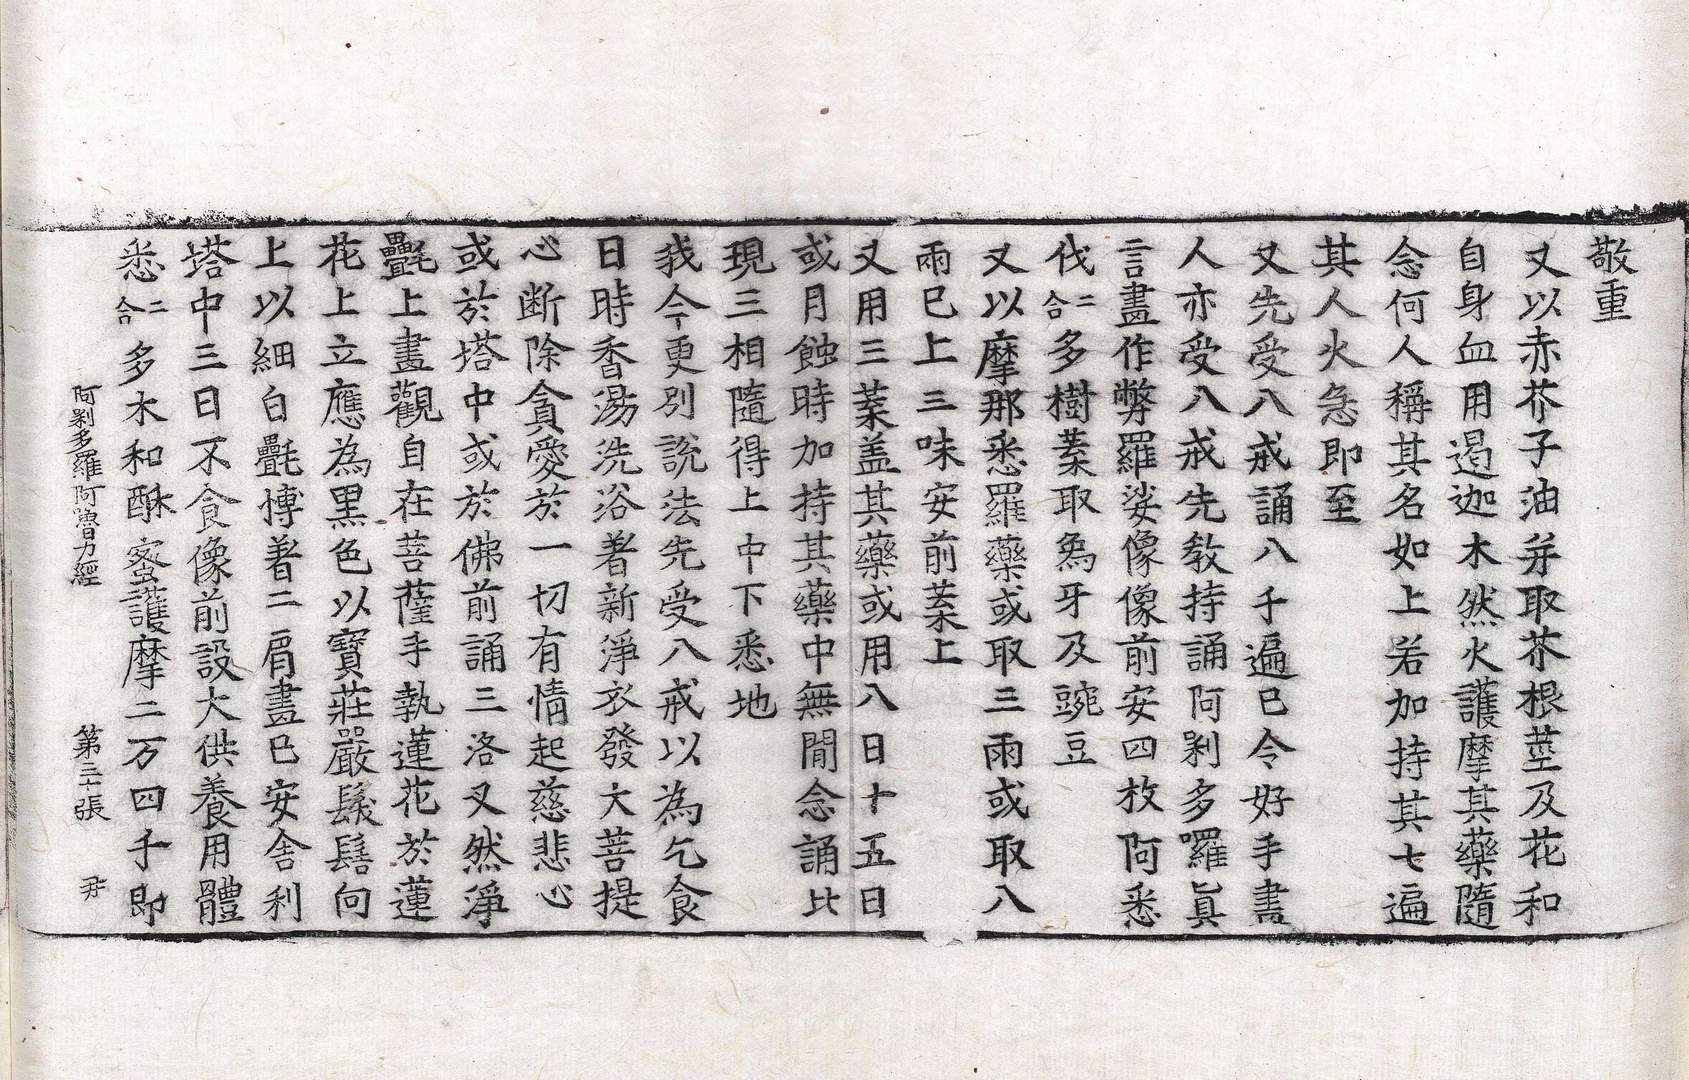 敬重
又以赤芥子油并取芥根莖及花和
自身血用遏迦木然火護摩其藥隨
念何人稱其名如上若加持其七遍
其人火急即至
又先受八戒誦八千遍已令好手畵
人亦受八戒先教持誦阿剎多囉眞
言畵作弊羅娑像像前安四枚阿悉
伐二合多樹葉取象牙及豌豆
又以摩那悉羅藥或取三兩或取八
兩已上三味安前葉上
又用三葉盖其藥或用八日十五日
或月蝕時加持其藥中無閒念誦比
現三相隨得上中下悉地
我今更別說法先受八戒以為乞食
日時香湯洗浴著新淨衣發大菩提
心断除貪愛於一切有情起慈悲心
或於塔中或於佛前誦三洛叉然淨
㲲上畵觀自在菩薩手執蓮花於蓮
花上立應為黒色以寶莊嚴髮髻向
上以細白㲲愽著二肩畵已安舍利
塔中三日不食像前設大供養用體
悉二合多木和酥蜜護摩二万四千即
阿剎多羅阿魯力經 第三十張 尹